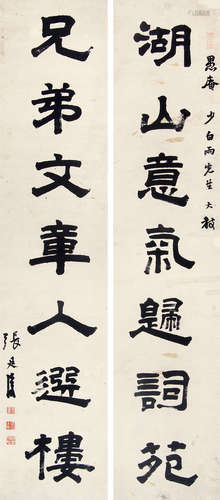 愚庵少白兩先生大教
湖山意氣歸詞苑
兄弟文章入選樓
張廷濟